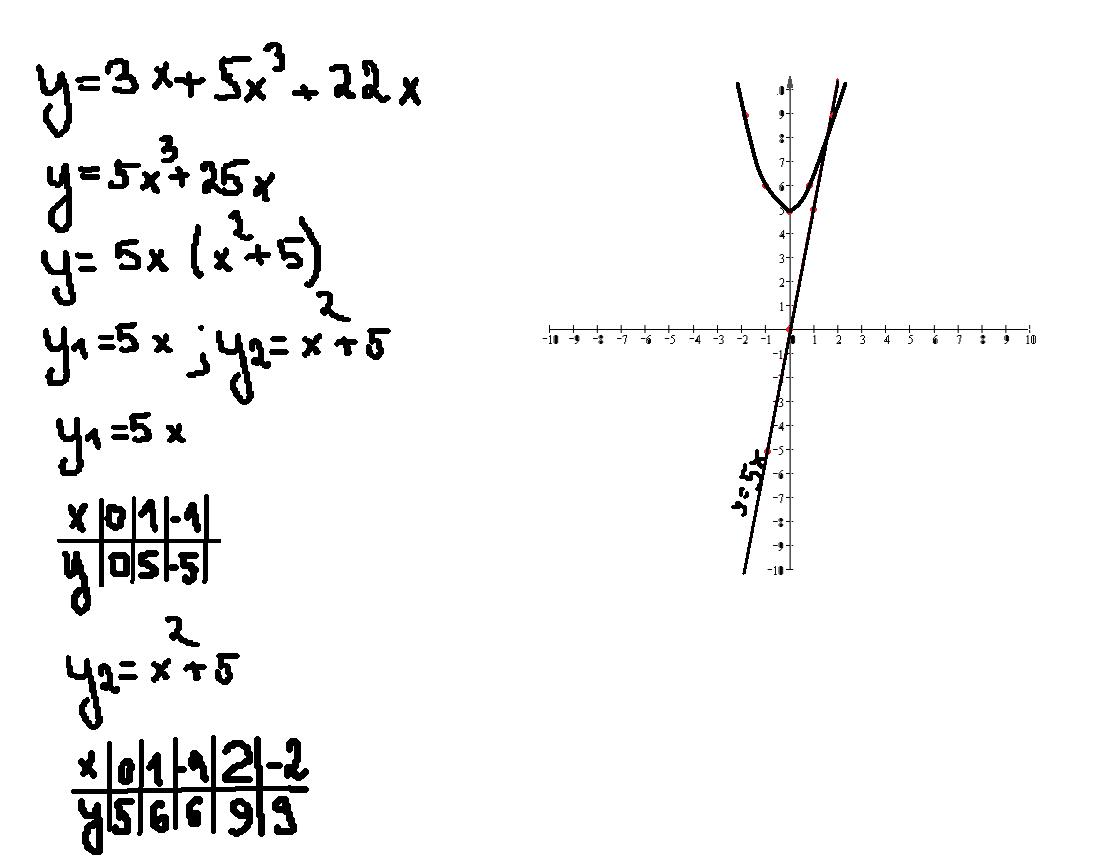 y=3x+5x³+22x
y=5x³+25x
y=5x(x²+5)
y₁=5x ; y₂=x²+5
y₁=5x
x | 0 | 1 | -1 |
y | 0 | 5 | -5 |
y₂=x²+5
x | 0 | 1 | -1 | 2 | -2
y | 5 | 6 | 6 | 9 | 9
9
8
7
6
5
4
3
2
1
-10 -9 -8 -7 -6 -5 -4 -3 -2 -1 0 1 2 3 4 5 6 7 8 9 10
-1
-3
-4
-5
-6
-7
-8
-9
-10
y=5x